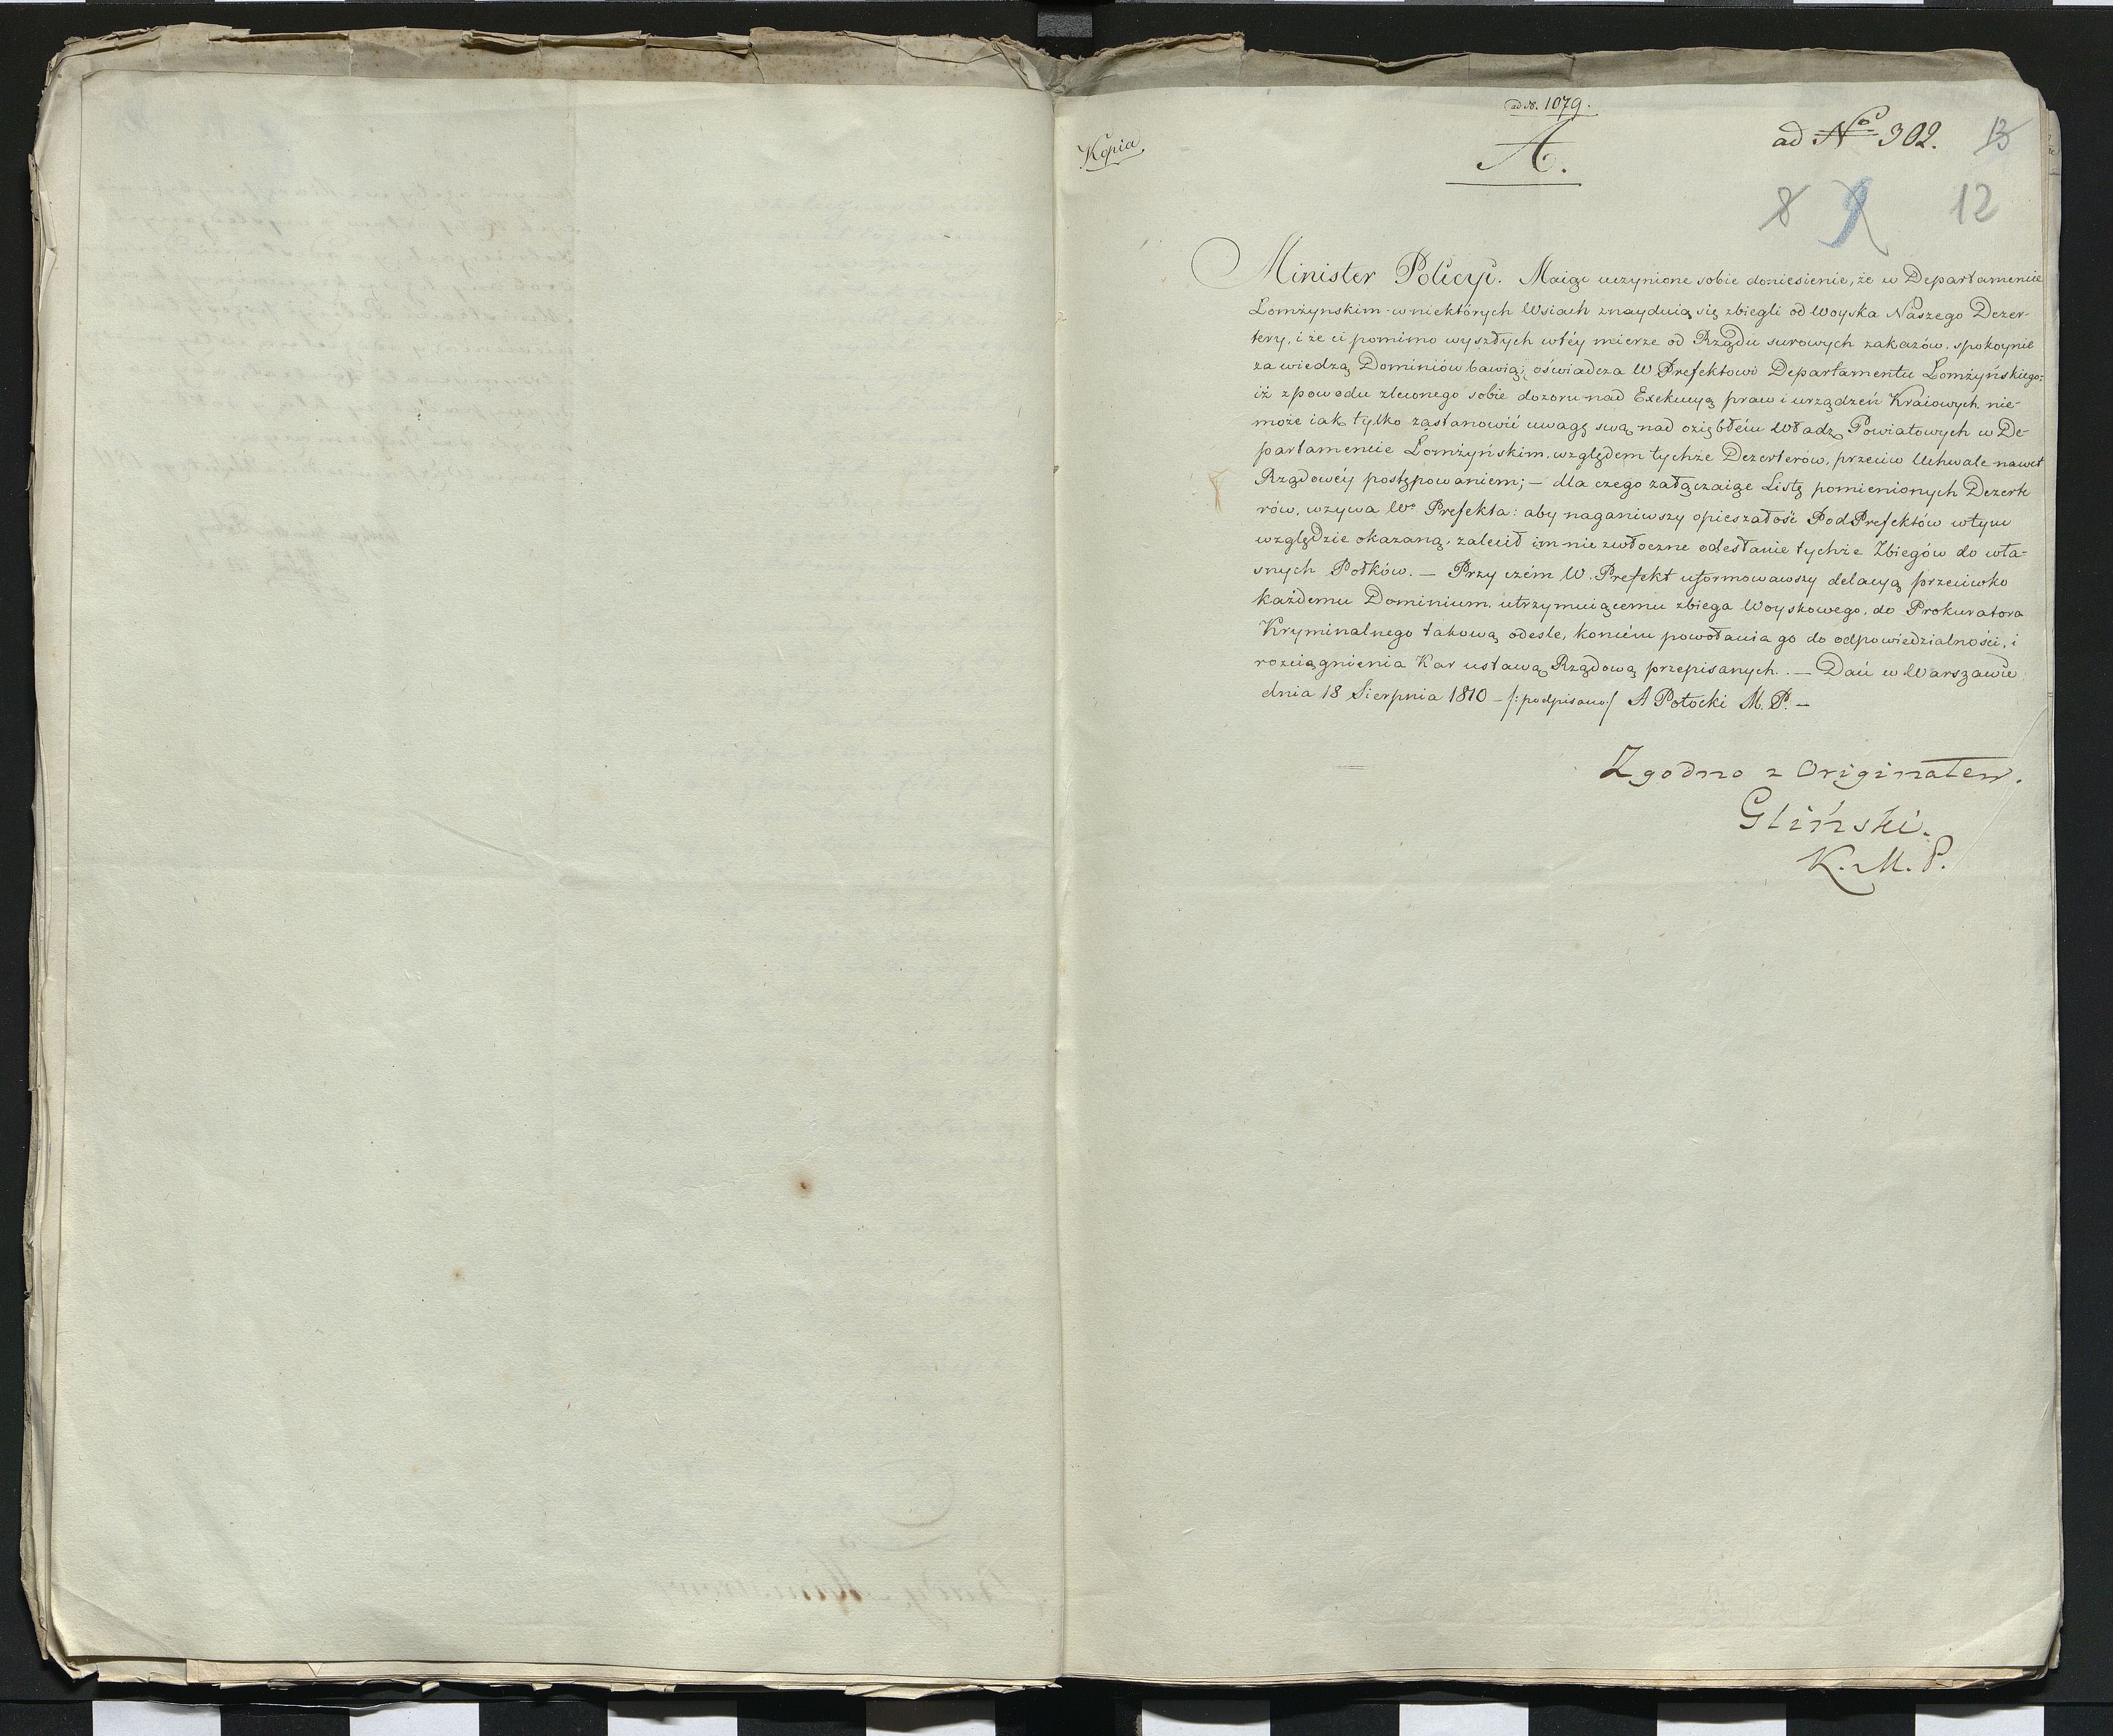 ad N. 1079.
Kopia
A.
ad No 302. 13
8 9 12
Minister Policyi. Maiąc uczynione sobie doniesienie, że w Departamencie
Łomżynskim w niektórych Wsiach znayduią się zbiegli od Woyska Naszego Dezer-
tery, i że ci pomimo wyszłych w téy mierze od Rządu surowych zakazów, spokoynie
za wiedzą Dominiów bawią; oświadcza W Prefektowi Departamentu Łomżyńskiego:
iż z powodu zleconego sobie dozoru nad Exekucyą praw i urządzeń Kraiowych, nie-
może iak tylko zastanowić uwagę swą nad oziębłém Władz Powiatowych w De-
partamencie Łomżyńskim, względem tychże Dezerterów, przeciw Uchwale nawet
Rządowéy postępowaniem; — dla czego załączaiąc Listę pomienionych Dezerte
rów, wzywa Wo Prefekta: aby naganiwszy opieszałość PodPrefektów w tym
względzie okazaną, zalecił im niezwłoczne odesłanie tychże Zbiegów do wła-
snych Połków. — Przy czém W. Prefekt uformowawszy delacyą przeciwko
każdemu Dominium, utrzymuiącemu zbiega Woyskowego, do Prokuratora
Kryminalnego takową odeśle, końcem powołania go do odpowiedzialności, i
rozciągnienia Kar ustawą Rządową przepisanych. — Dań w Warszawie
dnia 18 Sierpnia 1810 — /:podpisano:/ A Potocki M. P. —
Zgodno z Originałem.
Gliński.
K. M. P.